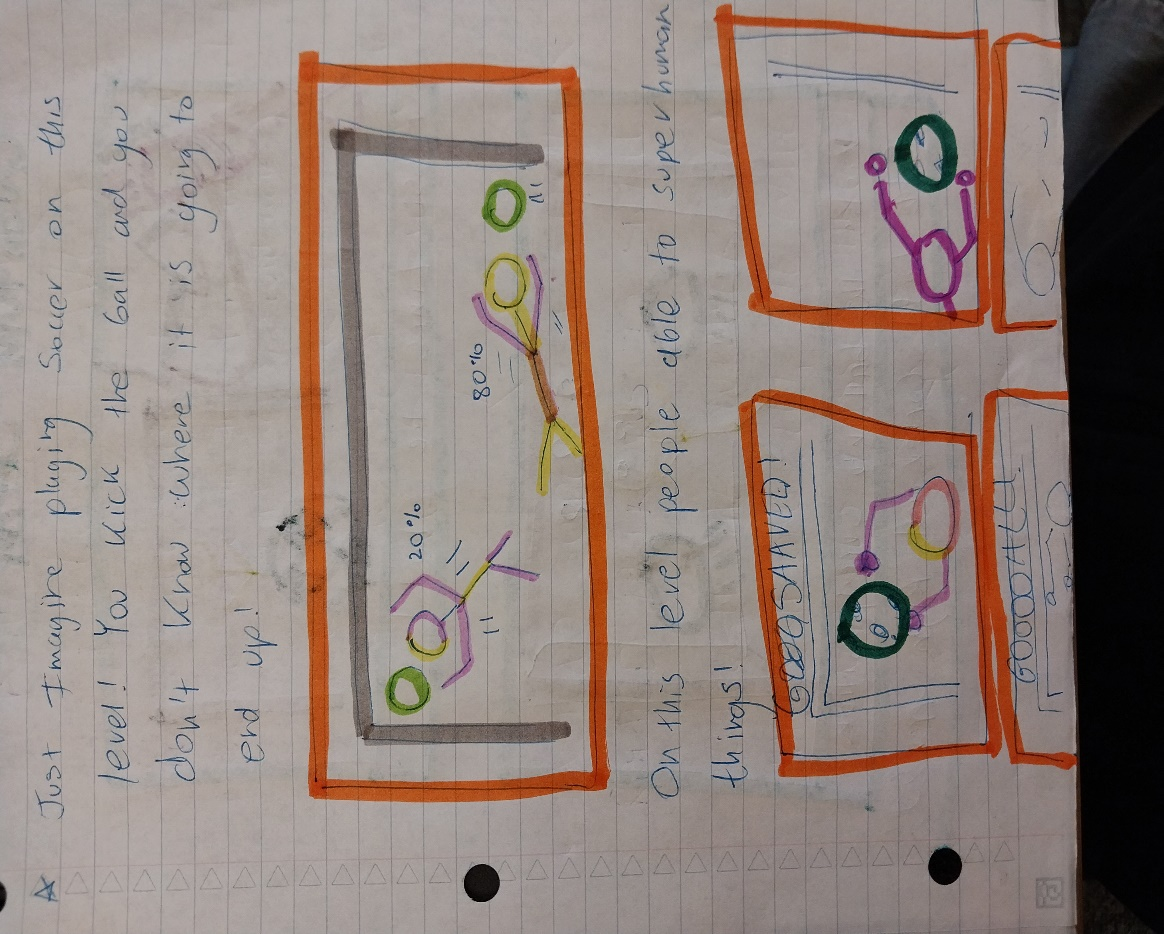 ☆ Just Imagine playing Soccer on this
level! You kick the ball and you
don't know where it is going to
end up!
20%
80%
On this level people able to super human
things!
GOOOOOAHLL!